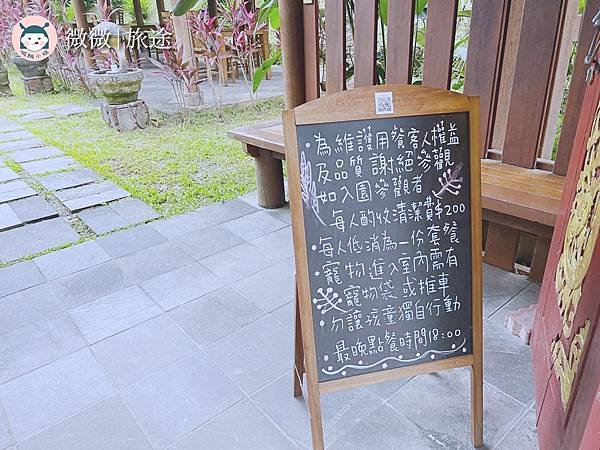 微微|旅途
微微小盜
•為維護用餐客人權益
及品質謝絕參觀
•如入園參觀者
每人酌收清潔費$200
•每人低消為一份套餐
•寵物進入室內需有
寵物袋或推車
•勿讓孩童獨自行動
•最晚點餐時間18:00